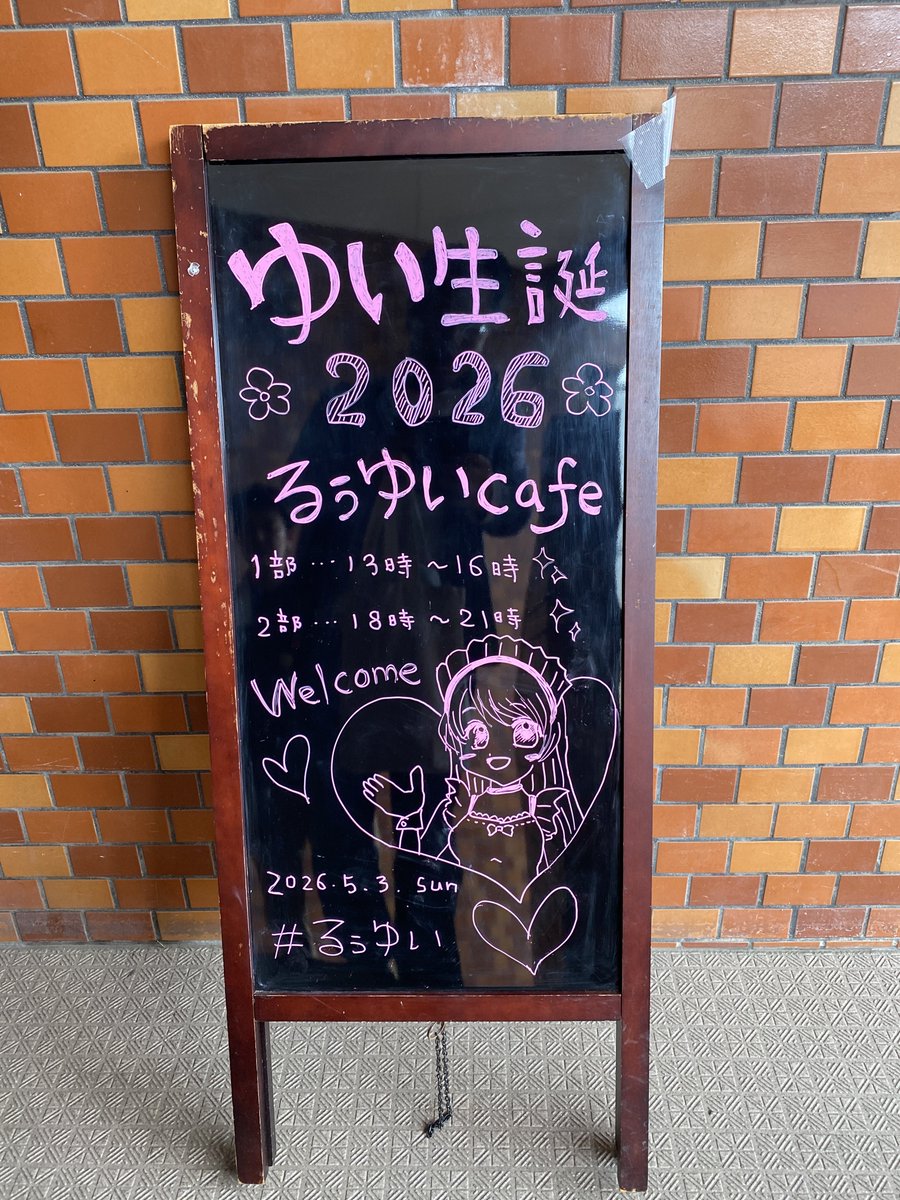 ゆい生誕
2026
るぅゆいcafe
1部…13時〜16時
2部…18時〜21時
Welcome
2026.5.3. Sun
#るぅゆい